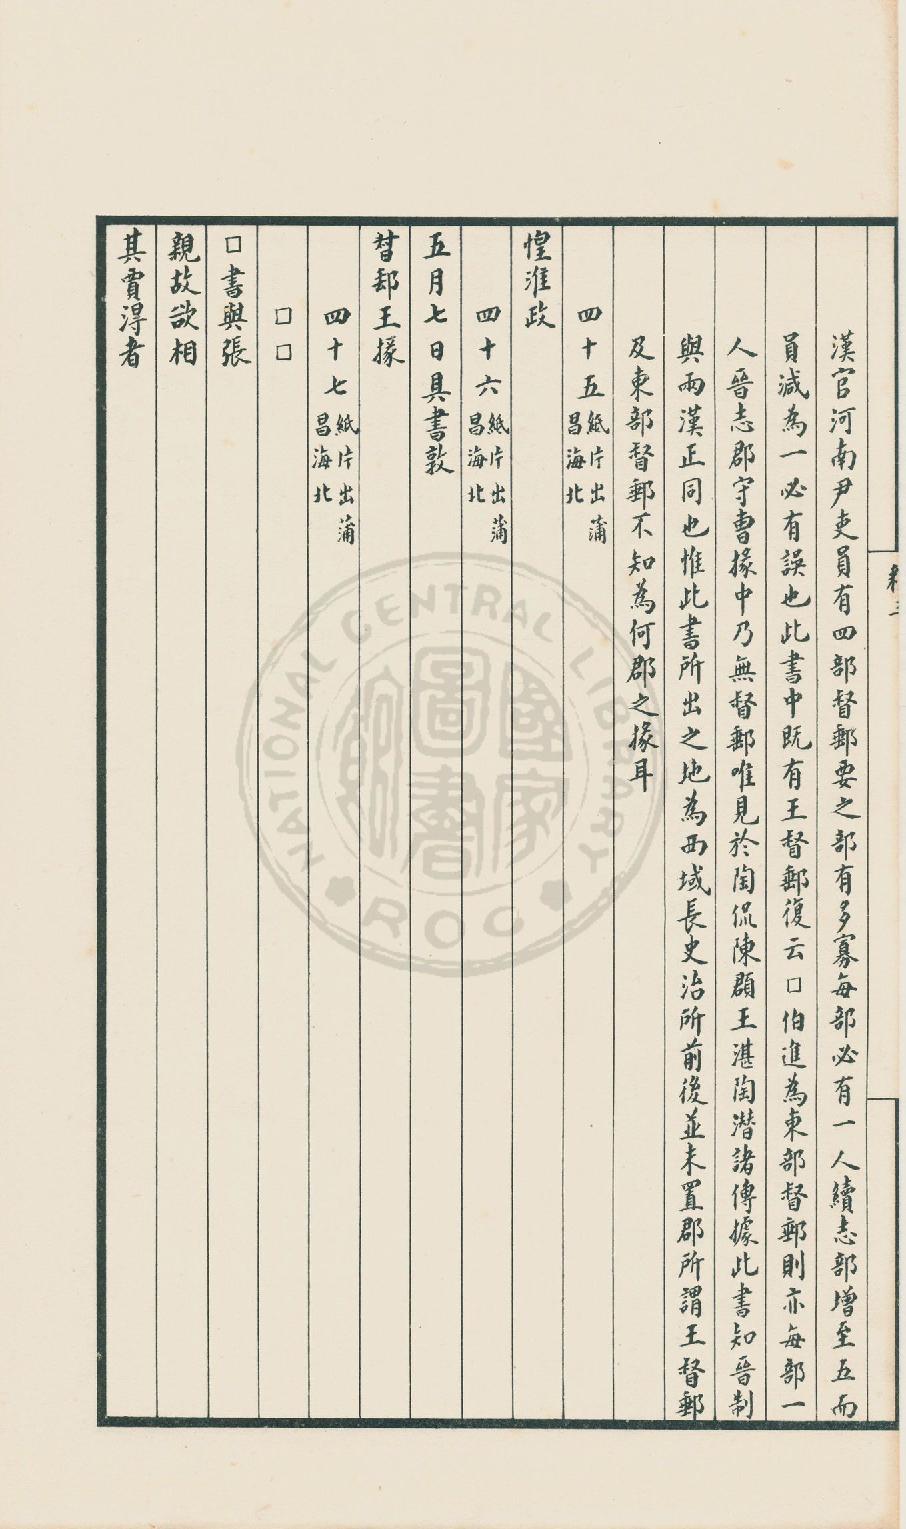 漢官河南尹吏員有四部督郵要之部有多寡每部必有一人續志部增至五而
員減為一必有誤也此書中既有王督郵復云□伯進為東部督郵則亦每部一
人晉志郡守曹掾中乃無督郵唯見於陶侃陳頵王湛陶潛諸傳據此書知晉制
與兩漢正同也惟此書所出之地為西域長史治所前後並未置郡所謂王督郵
及東部督郵不知為何郡之掾耳
四十五紙片出蒲昌海北
惶淮政
四十六紙片出蒲昌海北
五月七日具書敦
督郵王掾
四十七紙片出蒲昌海北
□□
□書與張
親故欲相
其賈得者
NATIONAL CENTRAL LIBRARY
ROC
國家圖書館